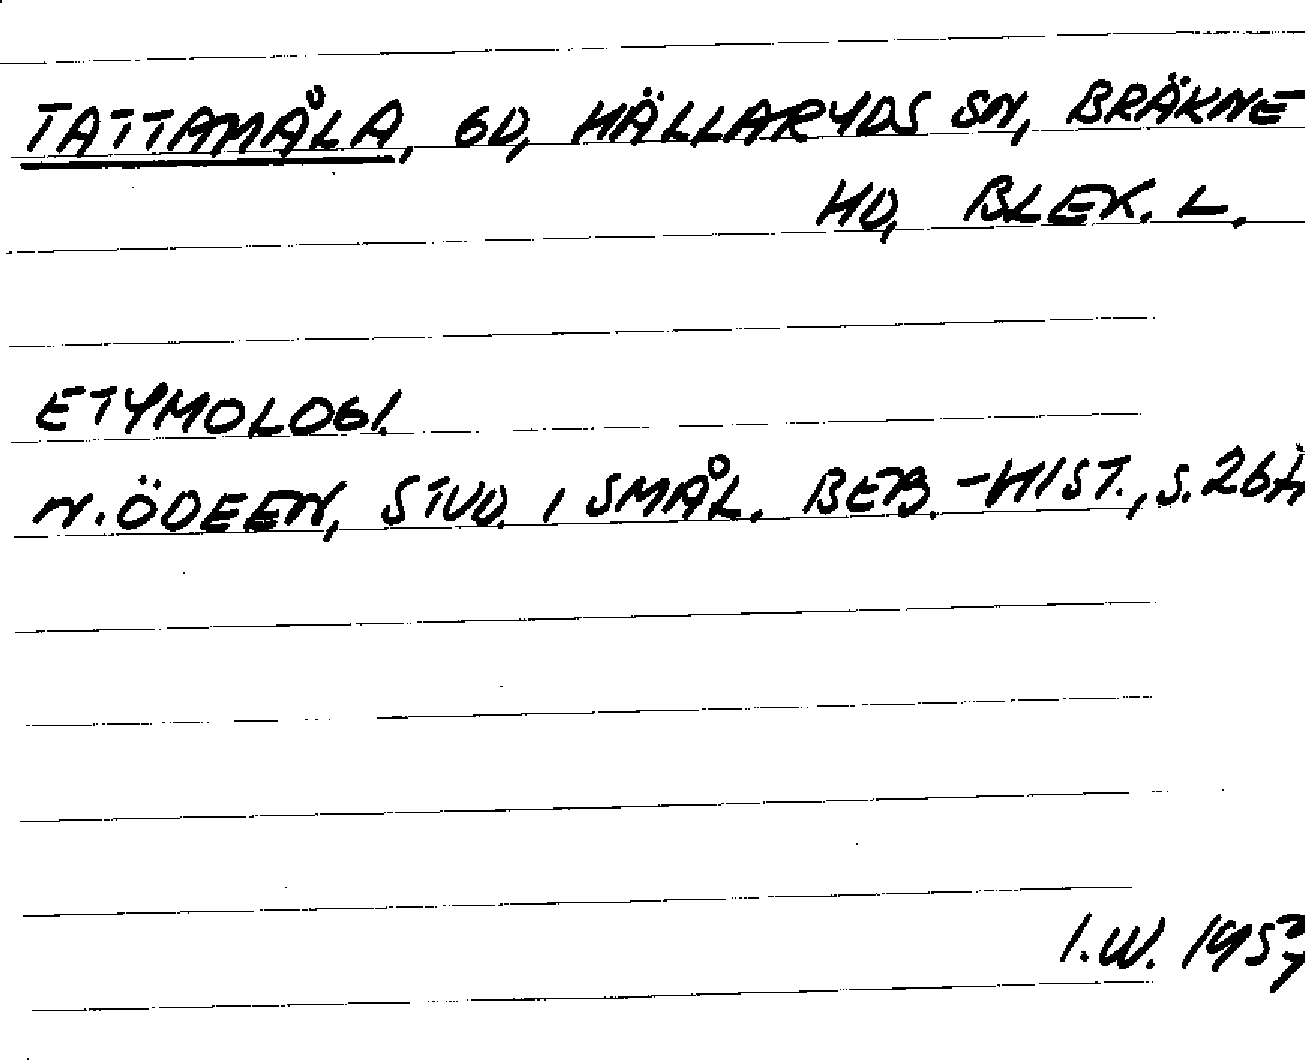 TATTAMÅLA, GD, HÄLLARYDS SN, BRÄKNE
HD, BLEK. L.
ETYMOLOGI.
N. ÖDEEN, STUD. I SMÅL. BEB.-HIST., S.
I.W. 1957